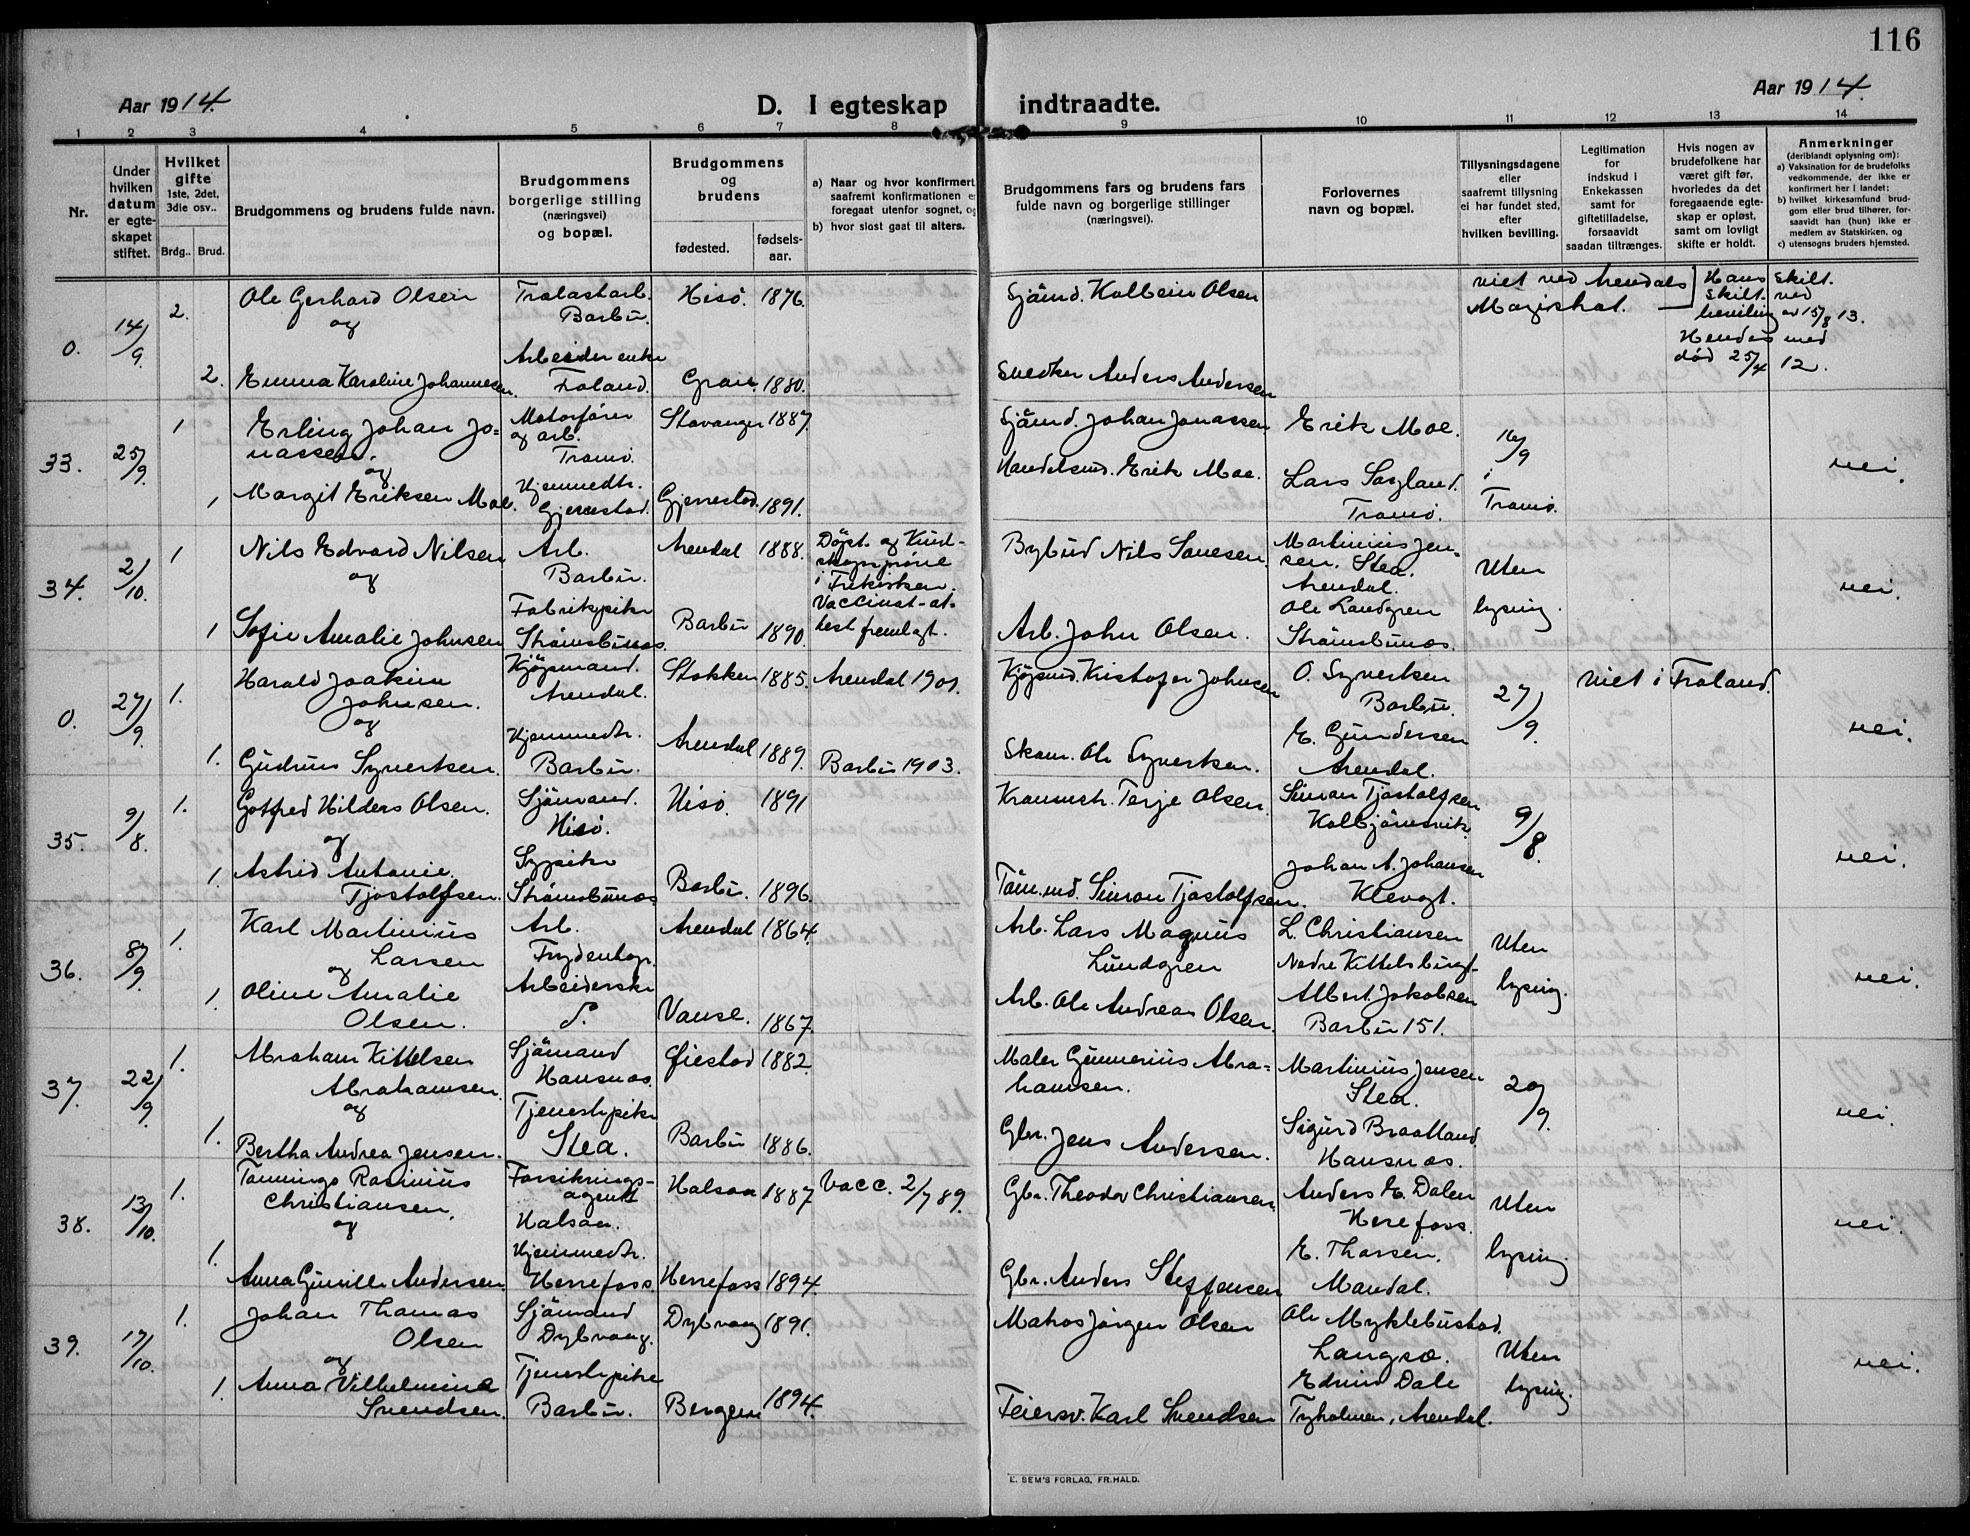 116
Aar 1914.
D. I egteskap indtraadte.
Aar 1914.
1 2 3 4 5 6 7 8 9 10 11 12 13 14
Nr.
Under hvilken datum er egteskapet stiftet.
Hvilket gifte 1ste, 2det, 3die osv..
Brdg.. Brud.
Brudgommens og brudens fulde navn.
Brudgommens borgerlige stilling (næringsvei) og bopæl.
Brudgommens og brudens
fødested. fødsels-aar.
a) Naar og hvor konfirmert saafremt konfirmationen er foregaat utenfor sognet, og
b) hvor sidst gaat til alters.
Brudgommens fars og brudens fars fulde navn og borgerlige stillinger (næringsvei).
Forlovernes navn og bopæl.
Tillysningsdagene eller saafremt tillysning ei har fundet sted, efter hvilken bevilling.
Legitimation for indskud i Enkekassen samt for giftetilladelse, forsaavidt saadan tiltrænges.
Hvis nogen av brudefolkene har været gift før, hvorledes da det foregaaende egteskap er opløst, samt om lovligt skifte er holdt.
Anmerkninger (deriblandt oplysning om):
a) Vaksination for de brudefolks vedkommende, der ikke er konfirmert her i landet;
b) hvilket kirkesamfund brudgom eller brud tilhører, forsaavidt han (hun) ikke er medlem av Statskirken, og
c) utensogns bruders hjemsted.
0. 14/9 2. Ole Gerhard Olsen Tralastarb. Barbu. Hisö. 1876. Sjömd. Kolbein Olsen viet ved Arendals Magistrat. Hans Skilt. skilt. ved bevilling av 15/8 13.
og
2. Emma Karoline Johannesen. Arbeider enke Froland. 1880. Snedker Anders Andersen Hendes med död 25/4 12.
33. 25/9 1 Erling Johan Jo=nassen. Motorförer og arb. Tromö. Stavanger 1887. Sjömd. Johan Jonassen Erik Moe. 16/9 nei.
og
1 Margit Eriksen Moe. Hjemmedtr. Gjerrestad. Gjerrestad. 1891. Handelsmd. Erik Moe. Lars Sagland. Tromö. i Tromö.
34. 2/10. 1 Nils Edvard Nilsen Arb. Barbu. Arendal 1888. Döpt. og Kund-skapspröve i Frikirken. Vaccinat-at-test fremlagt. Bybud Nils Martinius Jen-sen. Stea. Arendal. Uten nei.
og
1 Sofie Amalie Johnsen Fabrikpike Strömsbunes. Barbu 1890. Arb. John Olsen. Ole Landgren Strömsbunes. lysing.
0. 27/9. 1. Harald Joakim Johnsen. Kjöpmand. Arendal. Stokken 1885. Arendal 1901. Kjöpmd. Kristofer Johnsen O. Syvertsen Barbu. 27/9. viet i Froland. nei.
og
1. Gudrun Syvertsen. Hjemmedtr. Barbu. Arendal 1889. Barbu 1903. Skom. Ole Syvertsen. E. Gundersen Arendal.
35. 9/8. 1. Gotfred Hilders Olsen. Sjömand. Hisö. Hisö. 1891 Terje Olsen. Simon Tjostolfsen Kolbjörnsvik. 9/8. nei.
og
1. Astrid Antonie. Tjostolfsen. Sypike Strömsbunes Barbu. 1896. Töm.md. Simon Tjostolfsen. Johan A. Johansen Klevgt.
36. 8/9. 1. Karl Martinius Larsen Arb. Frydenhgr. Arendal 1864. Arb. Lars Magnus Lundgren L. Christiansen Nedre Kittelsbugt. Uten nei.
og
1. Oline Amalie Olsen. Arbeiderske S. Vanse. 1867. Arb. Ole Andreas Olsen. Albert Jakobsen Barbu 151. lysing.
37. 22/9. 1. Abraham Kittelsen Abrahamsen. Sjömand Hansnes. Öiestad 1882. Maler Gunnerius Abra=hamsen. Martinius Jensen Stea. 20/9. nei.
og
1. Bertha Andrea Jensen. Tjenestepike Stea. Barbu 1886. Gbr. Jens Andersen. Sigurd Braatland Hansnes.
38. 13/10. 1. Tønnings Rasinius Christiansen. Forsiknings-agent Halsaa. Halsaa 1887 Vacc. 2/7 89. Gbr. Theodor Christiansen. Anders E. Dalen Herefoss. Uten nei.
og
1. Anna Gunille Andersen Hjemmedtr. Herrefoss. Herrefoss 1894. Gbr. Anders Steffensen E. Thorsen. Mandal. lysing.
39. 17/10. 1. Johan Thomas Olsen Sjömand Dybvaag. Dybvaag 1891. Matros Jörgen Olsen Ole Myklebustad. Langsæ. Uten nei.
og
1. Anna Vilhelmine Svendsen. Tjenestepike Barbu. Bergen 1894. Feiersv. Karl Svendsen Edvin Dale Tyholmen, Arendal. lysing.
E. SEM'S FORLAG, FR.HALD.